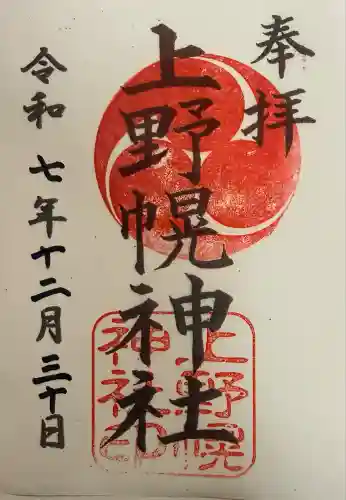 奉拝
上野幌神社
令和 七年十二月三十日
上野幌
神社印